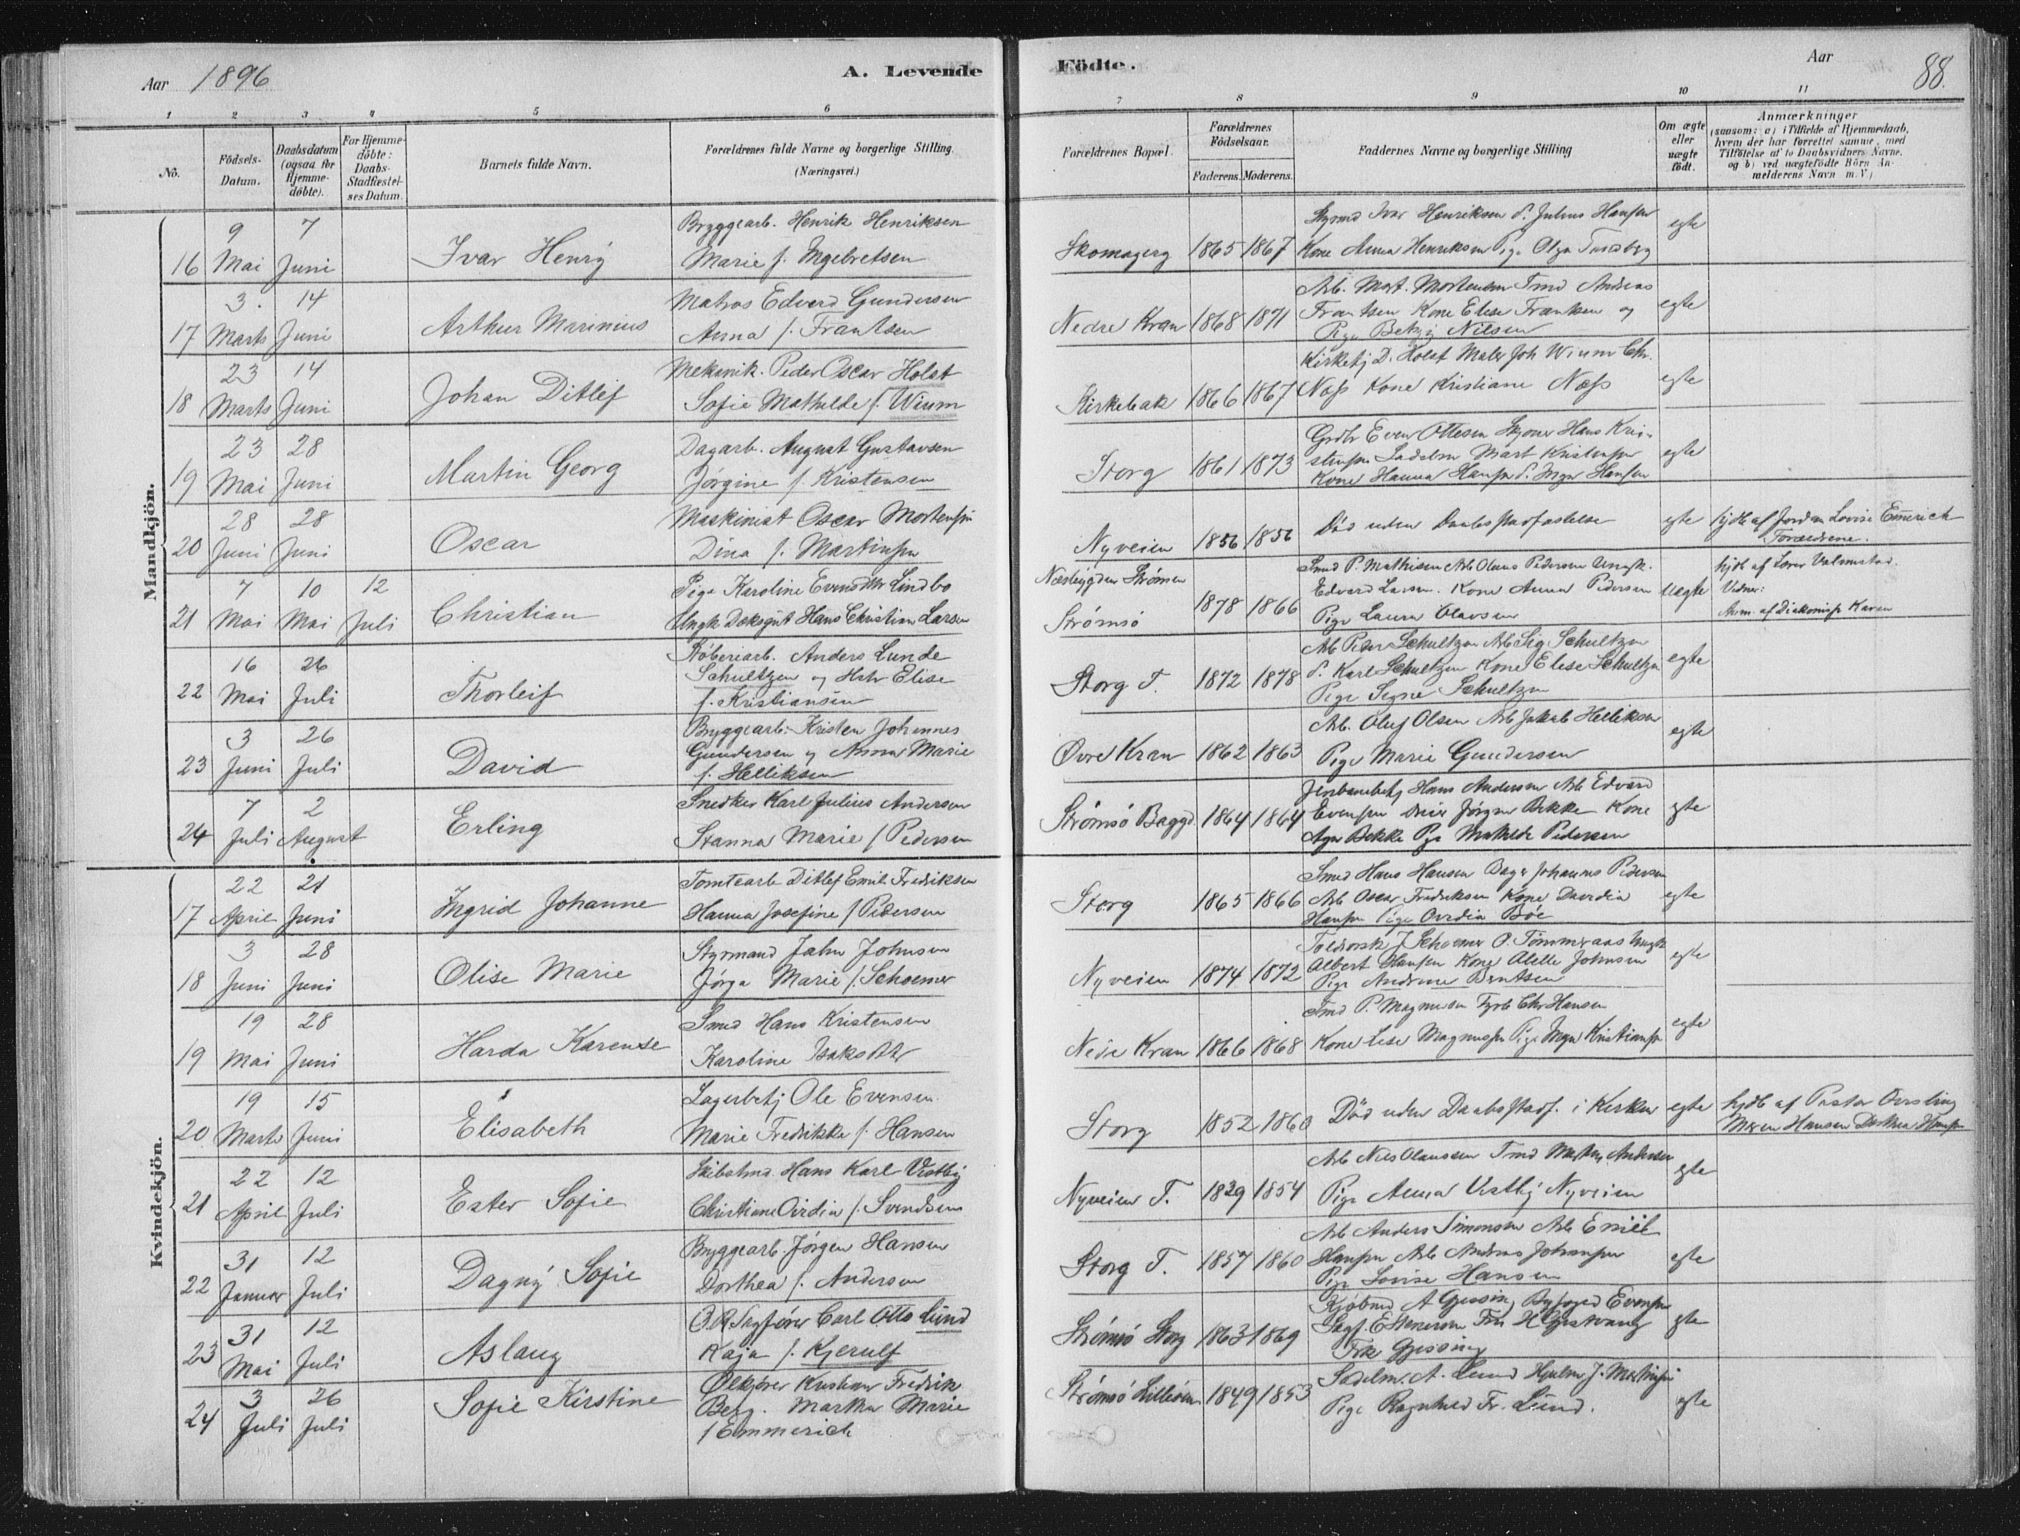 Aar 1896
A. Levende
Födte.
Aar
88.
1 2 3 4 5 6
7 8 9 10 11
No.
Födsels-Datum.
Daabsdatum (ogsaa for Hjemme-döbte).
For Hjemme-döbte: Daabs-Stadfæstel-ses Datum.
Barnets fulde Navn.
Forældrenes fulde Navne og borgerlige Stilling (Næringsvei.)
Forældrenes Bopæl.
Forældrenes Födselsaar.
Faderens. Moderens.
Faddernes Navne og borgerlige Stilling
Om ægte eller uægte födt.
Anmærkninger
(saasom: a) i Tilfælde af Hjemmedaab, hvem der har forrettet samme, med Tilföielse af to Daabsvidners Navne, og b) ved uægtefödte Börn An-melderens Navn m. V.)
Mandkjön.
9 7
16 Mai Juni
Ivar Henry
Bryggearb. Henrik Henriksen
Marie f. Ingebretsen
Skomagerg 1865 1867
Styrmd Ivar Henriksen S. Julius Hansen
Kone Anna Henriksen Pige Olga
egte
3. 14
17 Marts Juni
Arthur Marinius
Matros Edvard Gundersen
Anna f. Frantsen
Nedre Kran 1868 1871
Arb. Mart. Mortensen Tmd Andreas
Frantsen Kone Elise Frantsen og
Pige Betzy Nilsen
egte
23 14
18 Marts Juni
Johan Ditlef
Mekanik. Peder Oscar Holst
Sofie Mathilde f. Wium
Kirkebak 1866 1867
Kirketj D. Holst Maler Joh Wium Chr.
Næss Kone Kristiane Næss
egte
23 28
19 Mai Juni
Martin Georg
Dagarb. August Gustavsen
Jørgine f. Kristensen
Storg 1861 1873
Grdbr Even Ottesen Hans Kri-
stensen Sadelm Mart Kristensen
Kone Hanna Hansen S. Inger Hansen
egte
28 28
20 Juni Juni
Oscar
Maskinist Oscar Mortensen
Dina f. Martinsen
Nyveien 1856 1856
Død uden Daabsstadfæstelse
egte
hjdb af Jordm Lovise Emerich
Forældrene.
7 10 12
21 Mai Mai Juli
Christian
Pige Karoline Evensdtr Lindbo
Ungk Dæksgut Hans Christian Larsen
Næsbygden Strømsø
Strømsø 1878 1866
Smed P. Mathisen Arb Olaus Pedersen Ungk.
Edvard Larsen. Kone Anna Pedersen
Pige Laura Olavsen
uægte
hjdb af Lærer Valmestad.
Vidner:
Anm. af Diakonisse Karen
16 26
22 Mai Juli
Thorleif
Støberiarb. Anders Lunde
Schultzen og Hstr Elise
f. Kristiansen
Storg T. 1872 1878
Arb Peter Schultzen Arb Sig Schultzen
S. Karl Schultzen Kone Elise Schultzen
Pige Signe Schultzen
egte
3 26
23 Juni Juli
David
Bryggearb. Kristen Johannes
Gundersen og Anna Marie
f. Helliksen
Øvre Kran 1862 1863
Arb. Oluf Olsen Arb Jakob Helliksen
Pige Marie Gundersen
egte
7 2
24 Juli August
Erling
Snedker Karl Julius Andersen
Stanna Marie f Pedersen
Strømsø Baggd 1864 1864
Jernbanebetj Hans Andersen Arb Edvard
Evensen Jørgen Bekke Kone
Bekke Pige Mathilde Pedersen
egte
Kvindekjön.
22 21
17 April Juni
Ingrid Johanne
Tomtearb Ditlef Emil Fredriksen
Hanna Josefine f Pedersen
Storg 1865 1866
Smed Hans Hansen Johannes Pedersen
Arb Oscar Fredriksen Kone
Hansen Pige Ovidia Bøe
egte
3 28
18 Juni Juni
Olise Marie
Styrmand Jahn Johnsen
Jørga Marie f. Schoemer
Nyveien 1874 1872
J Schoemer O. Tømmeraas Ungk
Albert Hansen Kone Alette Johnsen
Pige Andrine Berntsen
egte
19 28
19 Mai Juni
Harda Karense
Smed Hans Kristensen
Karoline Isaksdtr
Nedre Kran 1866 1868
Smd P. Magnusen Fyrb Chr Hansen
Kone Lise Magnussen Pige Inga Kristiansen
egte
19 15
20 Marts Juni
Elisabeth
Lagerbetj Ole Evensen.
Marie Fredrikke f. Hansen
Storg 1852 1860
Død uden Daabsstadf. i Kirken
egte
hjdb af Pastor
Maren Hansen Dorthea Hansen
22 12
21 April Juli
Ester Sofie
Skibstmd Hans Karl Vestby
Christiane Ovidia f. Svendsen
Nyveien T. 1829 1854
Arb Nils Olaussen Tmd Martin Andersen
Pige Anna Vestby Nyveien
egte
31 12
22 Januar Juli
Dagny Sofie
Bryggearb. Jørgen Hansen
Dorthea f. Andersen
Storg T. 1857 1860
Arb Anders Simonsen Arb Emil
Hansen Arb Andreas Johansen
Pige Lovise Hansen
egte
31 12
23 Mai Juli
Aslaug
O.R Sagfører Carl Otto Lund
Kaja f. Kjerulf
Strømsø Storg 1863 1869
Kjøbmd A Gjessing Byfoged Evensen
Sagf. E Stenersen Fru
Frk Gjessing
egte
3 26
24 Juli Juli
Sofie Kirstine
Ølkjører Kristian Fredrik
Berg. Martha Marie
f Emmerich
Strømsø Lillestrøm 1849 1853
Sadelm. A. Lund Hjulm J. Martinsen
Pige Ragnhild Fr. Lund.
egte